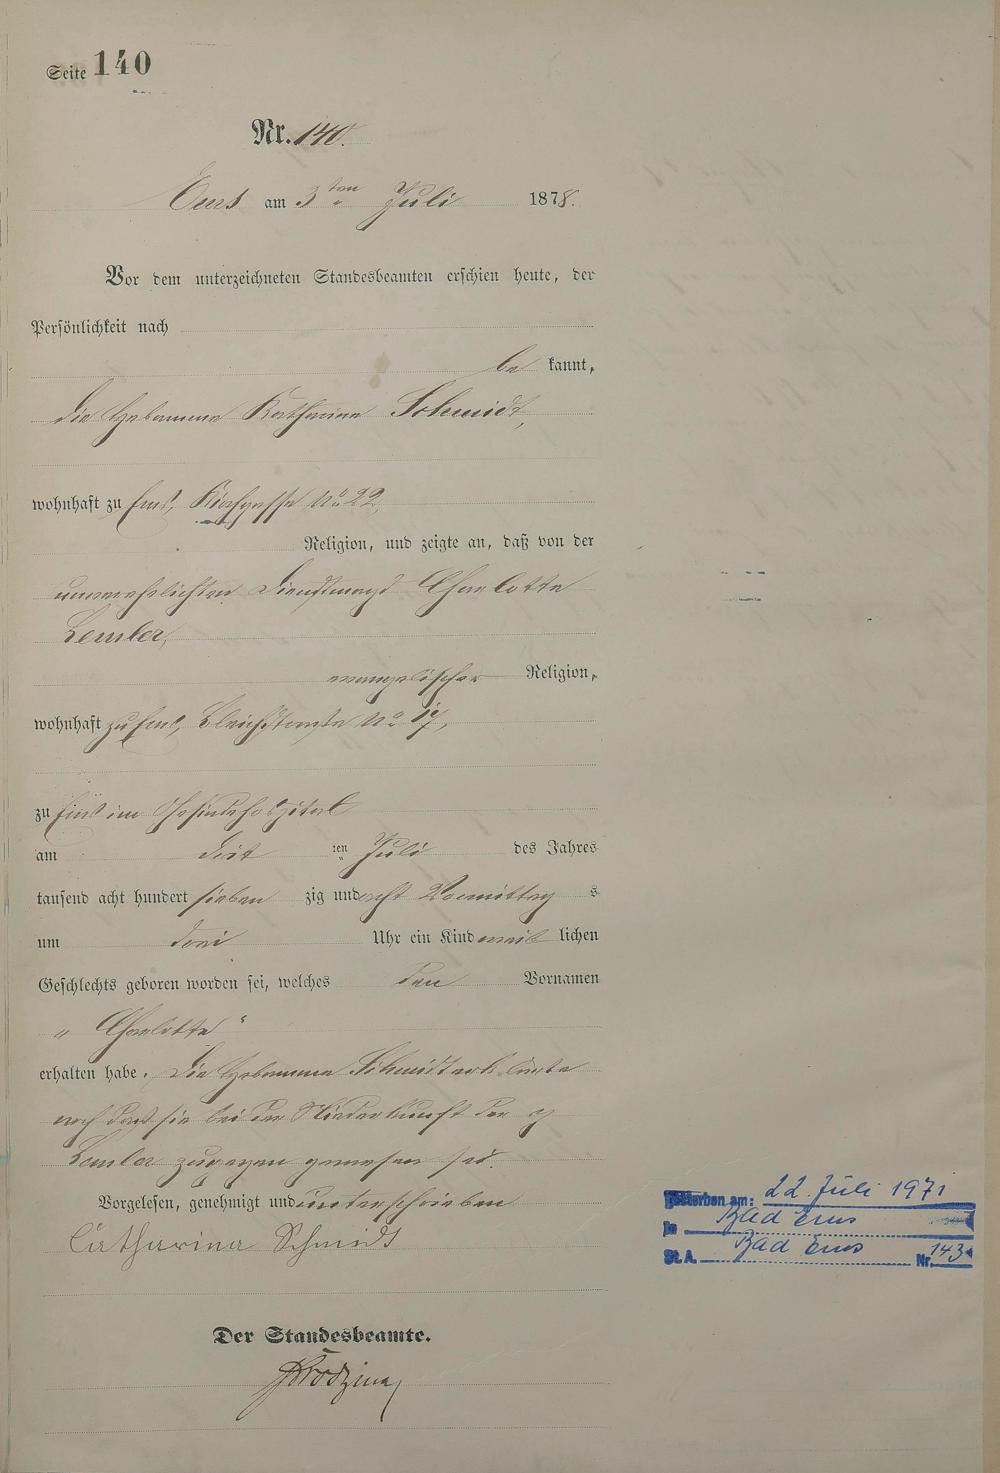 Seite 140
Nr. 140.
Ems am 3ten Juli 1878.
Vor dem unterzeichneten Standesbeamten erschien heute, der
Persönlichkeit nach
be kannt,
die Hebamme Katharina Schmidt,
wohnhaft zu Ems, Kirchgasse No 22,
Religion, und zeigte an, daß von der
unverehelichten Dienstmagd Charlotte
Lemler,
evangelischer Religion,
wohnhaft zu Ems, Bleichstraße No 17,
zu Ems im
am drit ten Juli des Jahres
tausend acht hundert sieben zig und acht Vormittag s
um drei Uhr ein Kind weib lichen
Geschlechts geboren worden sei, welches den Vornamen
„ Charlotte “
erhalten habe. Die Hebamme Schmidt erklärte
noch daß sie bei der Niederkunft der
Lemler zugegen gewesen sei.
Vorgelesen, genehmigt und unterschrieben
Catharina Schmidt
Der Standesbeamte.
Gestorben am: 22. Juli 1971
in Bad Ems
St. A. Bad Ems Nr. 143